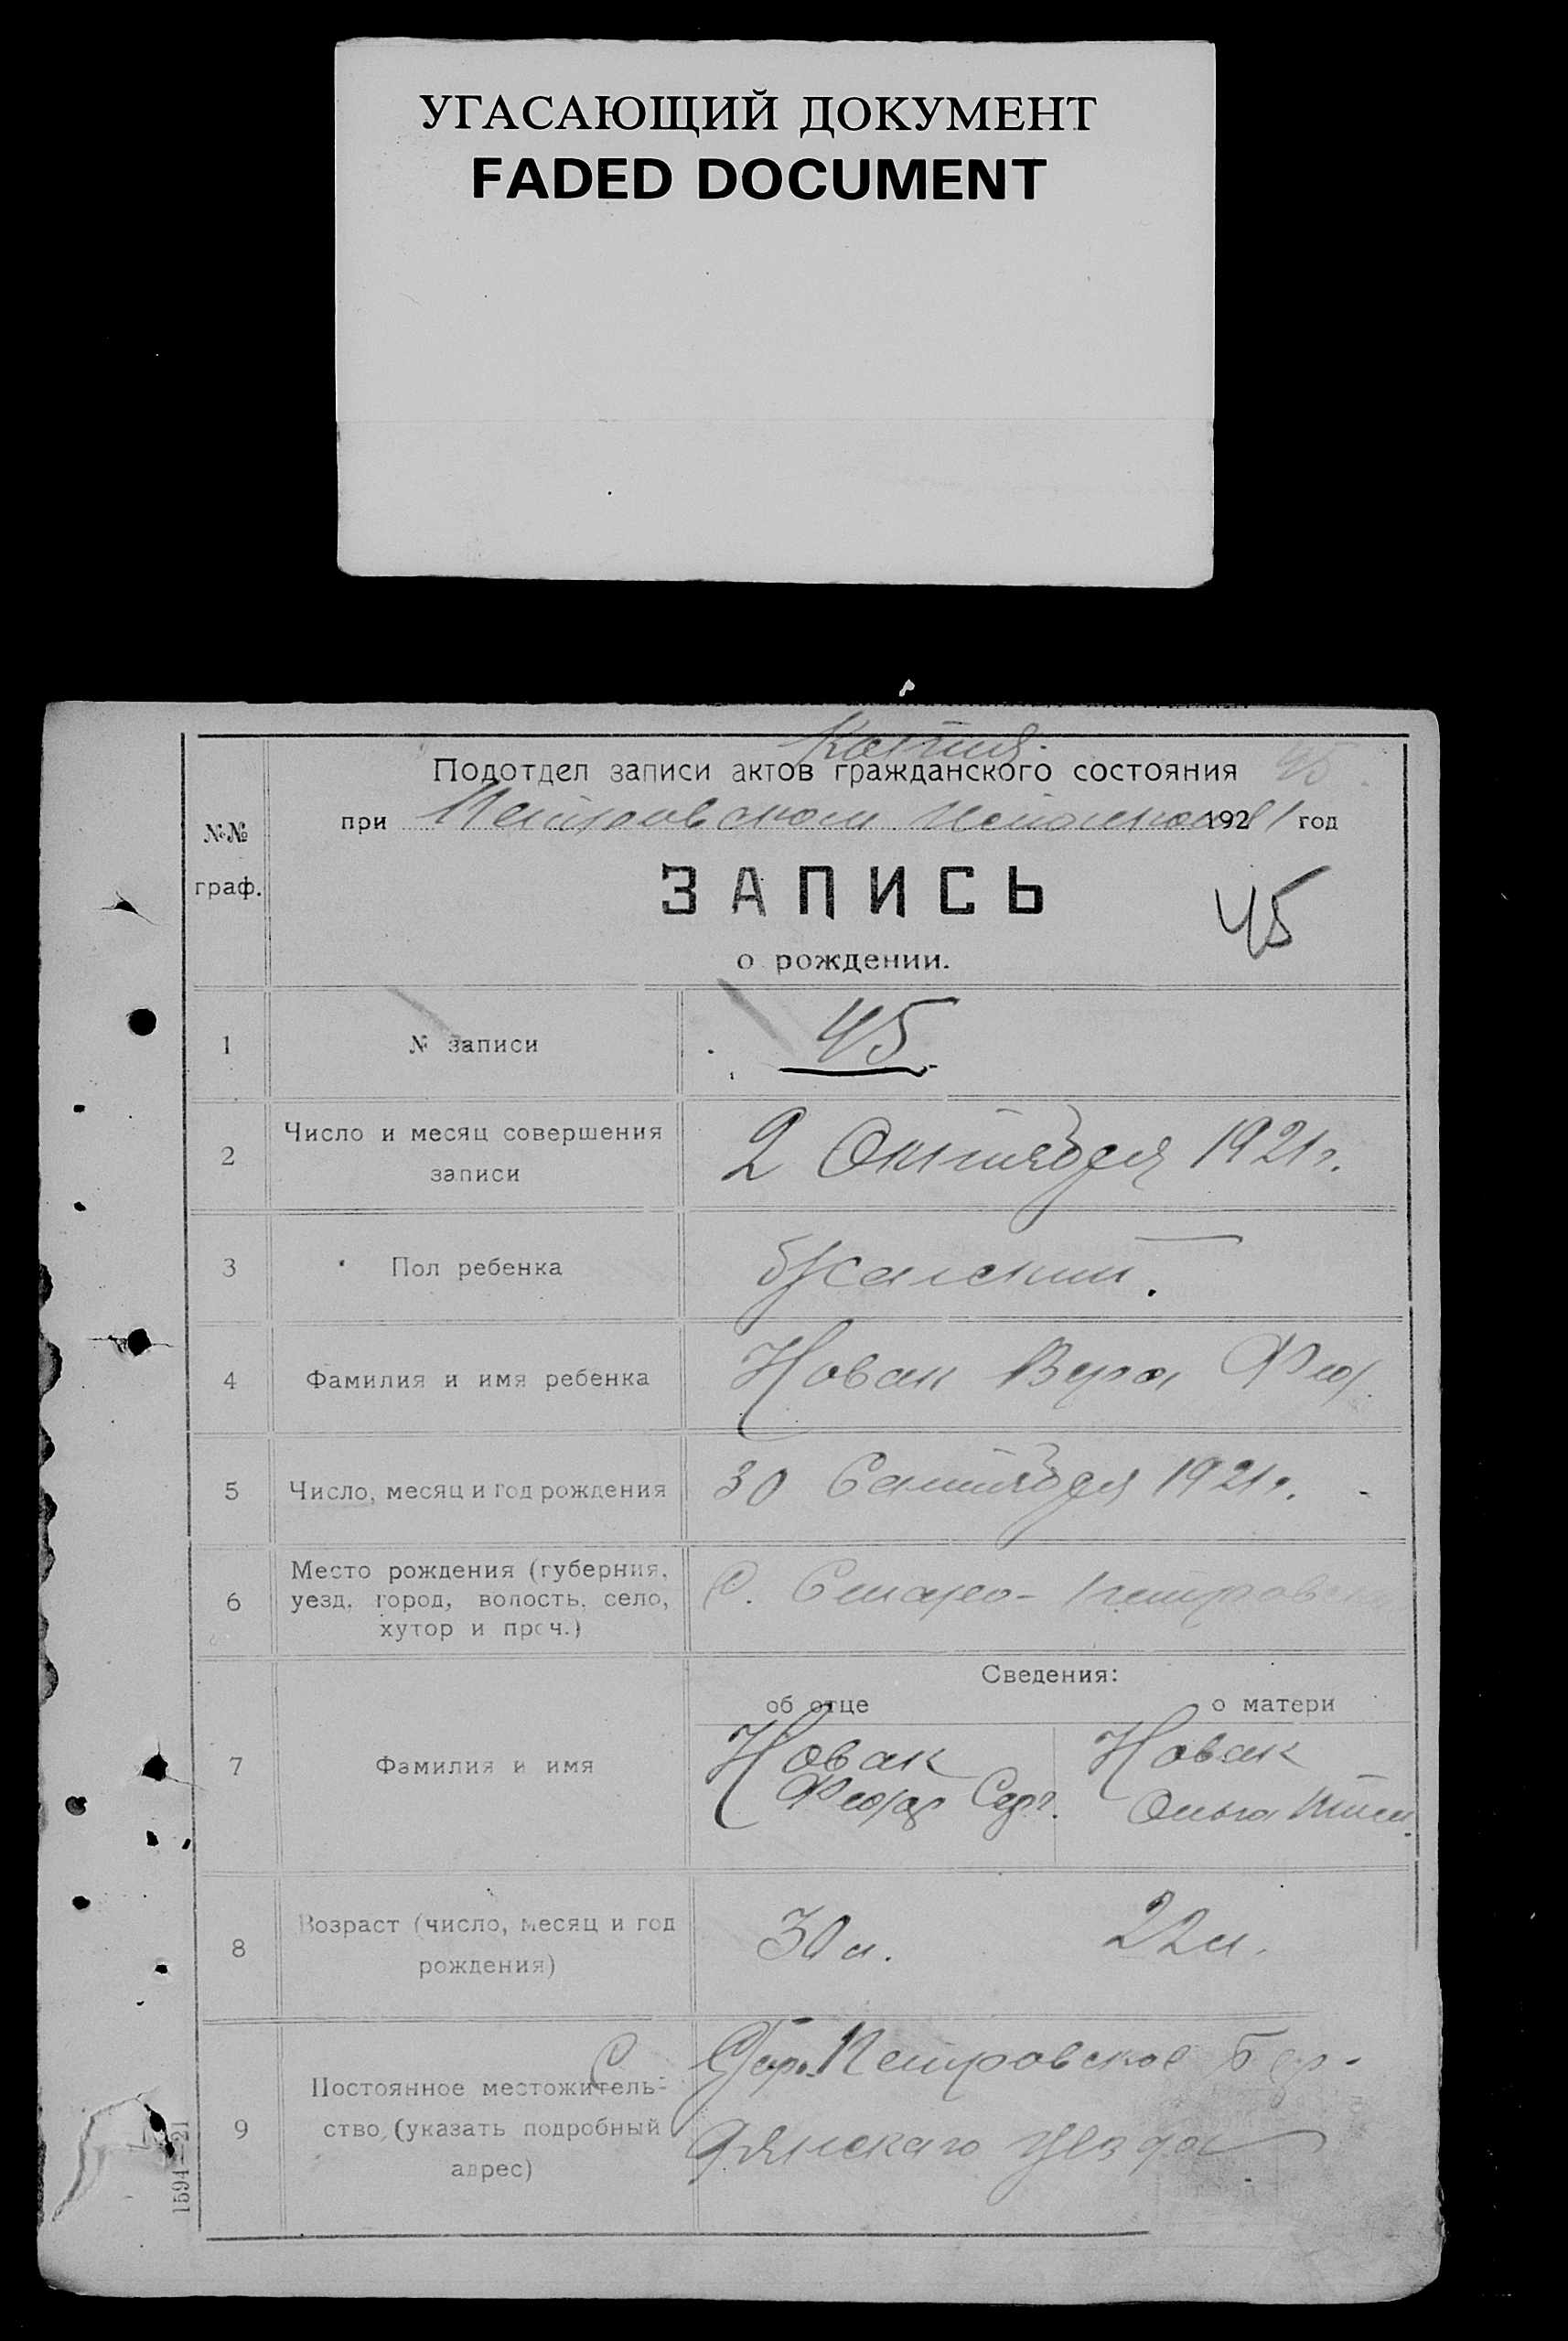 УГАСАЮЩИЙ ДОКУМЕНТ
FADED DOCUMENT
Копия.
Подотдел записи актов гражданского состояния 45.
при Петровском 1921 год
№№
граф.
ЗАПИСЬ
45
о рождении.
1 № записи 45.
2 Число и месяц совершения
записи
2 Октября 1921 г.
3 Пол ребенка Женский.
4 Фамилия и имя ребенка Новак Вера Фео
5 Число, месяц и год рождения 30 Сентября 1921 г.
6 Место рождения (губерния,
уезд, город, волость, село,
хутор и проч.)
С. Старо-Петровск
Сведения:
об отце о матери
7 Фамилия и имя
Новак Новак
Феодр Серг. Ольга
8 Возраст (число, месяц и год
рождения)
30 л. 22 л.
9 Постоянное местожитель-
ство, (указать подробный
адрес)
С Петровское Бер-
дянскаго уезда
1594—21